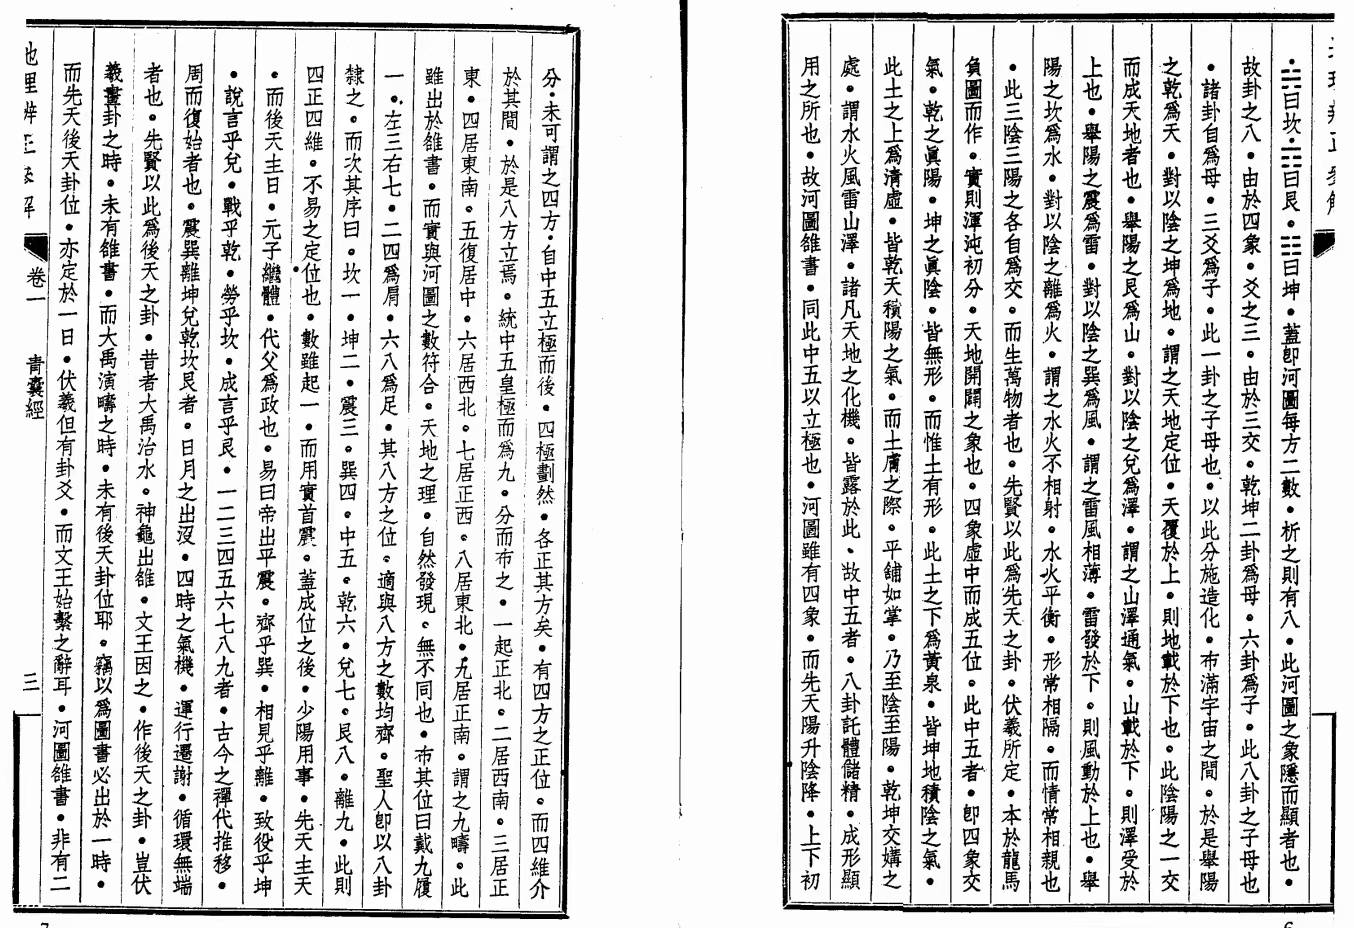 。☵曰坎。☶曰艮。☷曰坤。蓋卽河圖每方二數。析之則有八。此河圖之象隱而顯者也。
故卦之八。由於四象。爻之三。由於三交。乾坤二卦爲母。六卦爲子。此八卦之子母也
。諸卦自爲母。三爻爲子。此一卦之子母也。以此分施造化。布滿宇宙之間。於是舉陽
之乾爲天。對以陰之坤爲地。謂之天地定位。天覆於上。則地載於下也。此陰陽之一交
而成天地者也。舉陽之艮爲山。對以陰之兌爲澤。謂之山澤通氣。山載於下。則澤受於
上也。舉陽之震爲雷。對以陰之巽爲風。謂之雷風相薄。雷發於下。則風動於上也。舉
陽之坎爲水。對以陰之離爲火。謂之水火不相射。水火平衡。形常相隔。而情常相親也
。此三陰三陽之各自爲交。而生萬物者也。先賢以此爲先天之卦。伏羲所定。本於龍馬
負圖而作。實則渾沌初分。天地開闢之象也。四象虛中而成五位。此中五者。卽四象交
氣。乾之眞陽。坤之眞陰。皆無形。而惟土有形。此土之下爲黃泉。皆坤地積陰之氣。
此土之上爲清虛。皆乾天積陽之氣。而土膚之際。平舖如掌。乃至陰至陽。乾坤交媾之
處。謂水火風雷山澤。諸凡天地之化機。皆露於此、故中五者。八卦託體儲精。成形顯
用之所也。故河圖雒書。同此中五以立極也。河圖雖有四象。而先天陽升陰降。上下初
6
分。未可謂之四方。自中五立極而後。四極劃然。各正其方矣。有四方之正位。而四維介
於其間。於是八方立焉。統中五皇極而爲九。分而布之。一起正北。二居西南。三居正
東。四居東南。五復居中。六居西北。七居正西。八居東北。九居正南。謂之九疇。此
雖出於雒書。而實與河圖之數符合。天地之理。自然發現。無不同也。布其位曰戴九履
一。左三右七。二四爲肩。六八爲足。其八方之位。適與八方之數均齊。聖人卽以八卦
隸之。而次其序曰。坎一。坤二。震三。巽四。中五。乾六。兌七。艮八。離九。此則
四正四維。不易之定位也。數雖起一。而用實首震。蓋成位之後。少陽用事。先天主天
。而後天主日。元子繼體。代父爲政也。易曰帝出乎震。齊乎巽。相見乎離。致役乎坤
。說言乎兌。戰乎乾。勞乎坎。成言乎艮。一二三四五六七八九者。古今之禪代推移。
周而復始者也。震巽離坤兌乾坎艮者。日月之出沒。四時之氣機。運行遷謝。循環無端
者也。先賢以此爲後天之卦。昔者大禹治水。神龜出雒。文王因之。作後天之卦。豈伏
羲畫卦之時。未有雒書。而大禹演疇之時。未有後天卦位耶。竊以爲圖書必出於一時。
而先天後天卦位。亦定於一日。伏羲但有卦爻。而文王始繫之辭耳。河圖雒書。非有二
地理辨正參解 卷一 青囊經 三
7